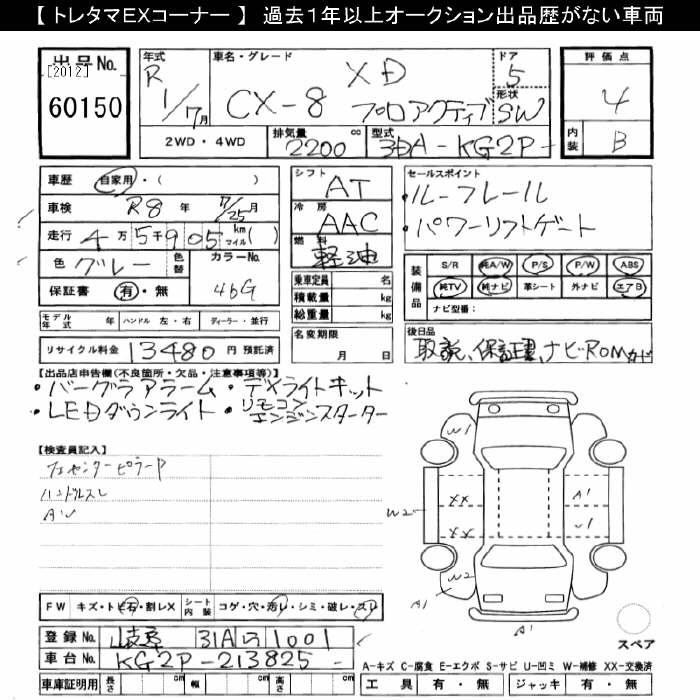 【 トレタマEXコーナー 】 過去1年以上オークション出品歴がない車両
出品No.
[2012]
60150
年式
R 1/7月
車名・グレード
XD
CX-8 プロアクティブ
ドア
5
形状
SW
評価点
4
内装
B
2WD・4WD
排気量 2200 cc
型式 3DA-KG2P-
車歴 自家用・( )
車検 R8 年 7/25 月
走行 4万5千905 km マイル( )
色 グレー 色替 カラーNo.
保証書 有・無 46G
シフト AT
冷房 AAC
燃料 軽油
乗車定員 名
積載量 kg
総重量 kg
セールスポイント
・ルーフレール
・パワーリフトゲート
装備品
S/R 純A/W P/S P/W ABS
純TV 純ナビ 革シート 外ナビ エアB
ナビ型番：
モデル年式 年 ハンドル 左・右 ディーラー・並行
名変期限
月 日
リサイクル料金 13480 円 預託済
後日品
取説、保証書、ナビROMカード
【出品店申告欄(不良箇所・欠品・注意事項等)】
・バーグラアラーム ・デイライトキット
・LEDダウンライト ・リモコンエンジンスターター
【検査員記入】
ハンドルスレ
W1
XX XX
W2
A1
W2
A1
A1
スペア
FW キズ・トビ石・割レX シート内装 コゲ・穴・汚レ・シミ・破レ・スレ
登録No. 岐阜 31A の 1001
車台No. KG2P-213825-
A-キズ C-腐食 E-エクボ S-サビ U-凹ミ W-補修 XX-交換済
車庫証明用 長さ cm 幅 cm 高さ cm
工具 有・無 ジャッキ 有・無